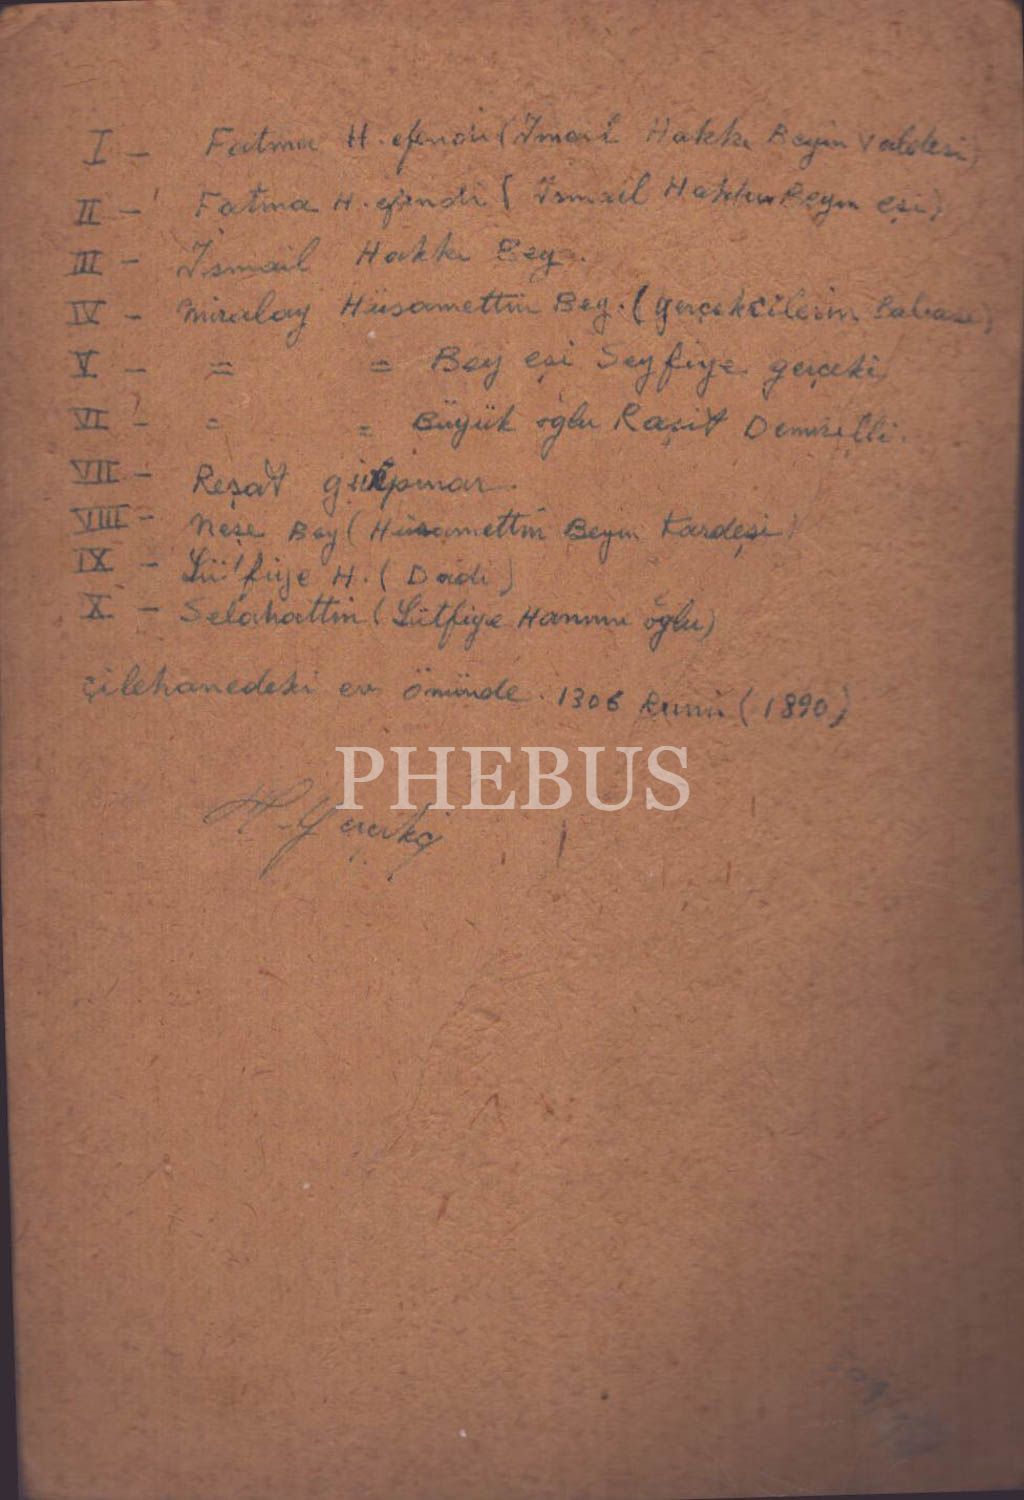 I - Fatma H. efendi (İmail Hakkı Beyin Valdesi)
II - Fatma H. efendi (İsmail Hakkı Beyin eşi)
III - İsmail Hakkı Bey.
IV - Miralay Hüsamettin Bey. (gerçekcilerin Babası)
V - = = Bey eşi Seyfiye gerçeki
VI - = = Büyük oğlu Raşit Demirelli.
VII - Reşat gülpınar.
VIII - Neşe Bey (Hüsamettin Beyin Kardeşi)
IX - Lütfiye H. (Dadı)
X - Selahattin (Lütfiye Hanımın oğlu)
çilehanedeki ev önünde. 1306 Rumi (1890)
PHEBUS